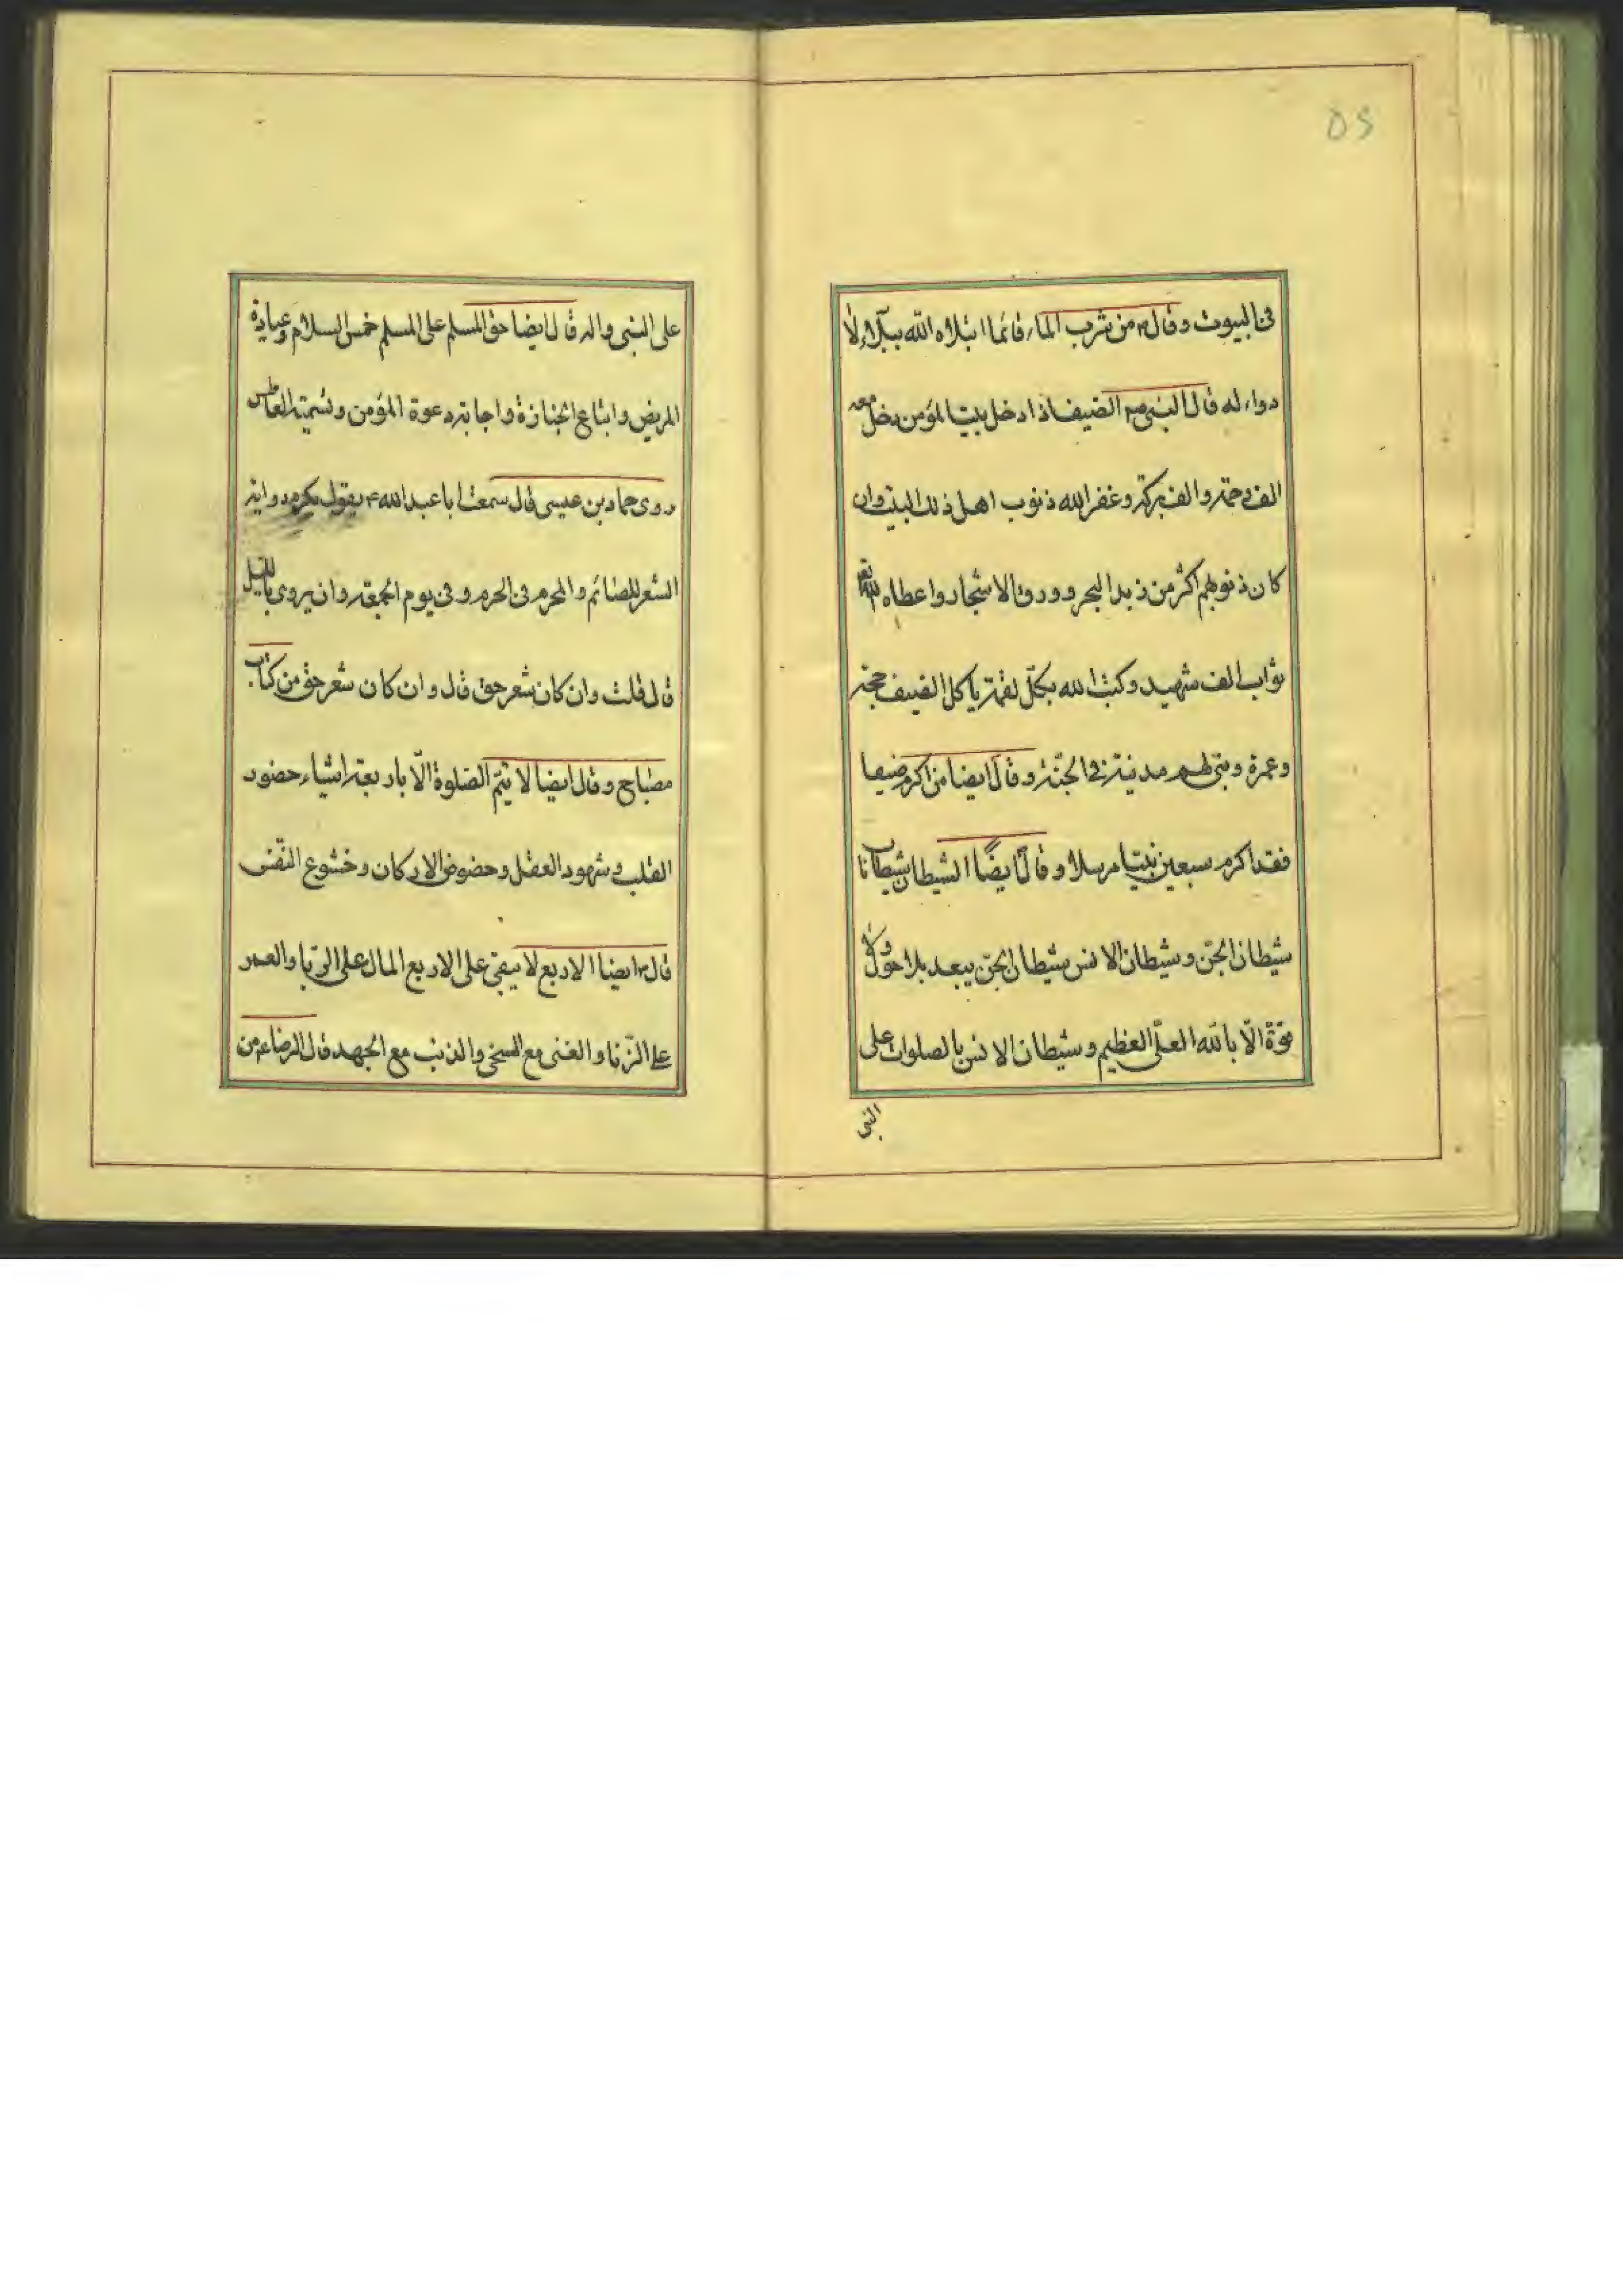 في البيوت وقال ۴ من شرب الماء قائما ابتلاه الله ببلاء لا
دواء له قال النبي ص۴ الضيف اذا دخل بيت المؤمن دخل معه
الف رحمة والف بركة وغفر الله ذنوب اهل ذلك البيت وان
كان ذنوبهم اكثر من زبد البحر وورق الاشجار واعطاه الله تع
ثواب الف شهيد وكتب الله بكلّ لقمة ياكل الضيف حجة
وعمرة وبنى لهم مدينة في الجنّة وقال ايضا من اكرم ضيفا
فقد اكرم سبعين نبيّا مرسلا وقال ايضًا الشيطان شيطانان
شيطان الجنّ وشيطان الانس شيطان الجنّ يبعد بلا حول ولا
قوّة الّا بالله العلّي العظيم وشيطان الانس بالصلوات على
النبي
على النبي واله قال ايضا حق المسلم على المسلم خمس السلام وعيادة
المريض واتباع الجنازة واجابة دعوة المؤمن وتسميت العاطس
روى حماد بن عيسى قال سمعت ابا عبد الله ۴ يقول يكره رواية
الشعر للصائم والمحرم في الحرم وفي يوم الجمعة وان يروى بالليل
قال قلت وان كان شعر حق قال وان كان شعر حق من كتاب
مصباح وقال ايضا لا تتمّ الصّلوة الّا باربعة اشياء حضور
القلب وشهود العقل وحضوض الاركان وخشوع النفس
قال ۴ ايضا الاربع لا يبقى على الاربع المال على الرّبا والعمر
على الزّنا والغنى مع السخى والذنب مع الجهد قال الرضا ع من